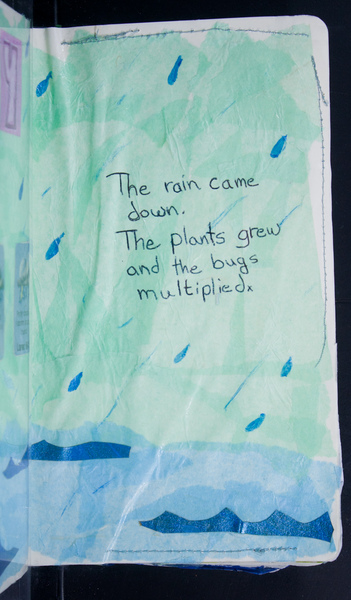 The rain came
down.
The plants grew
and the bugs
multiplied.